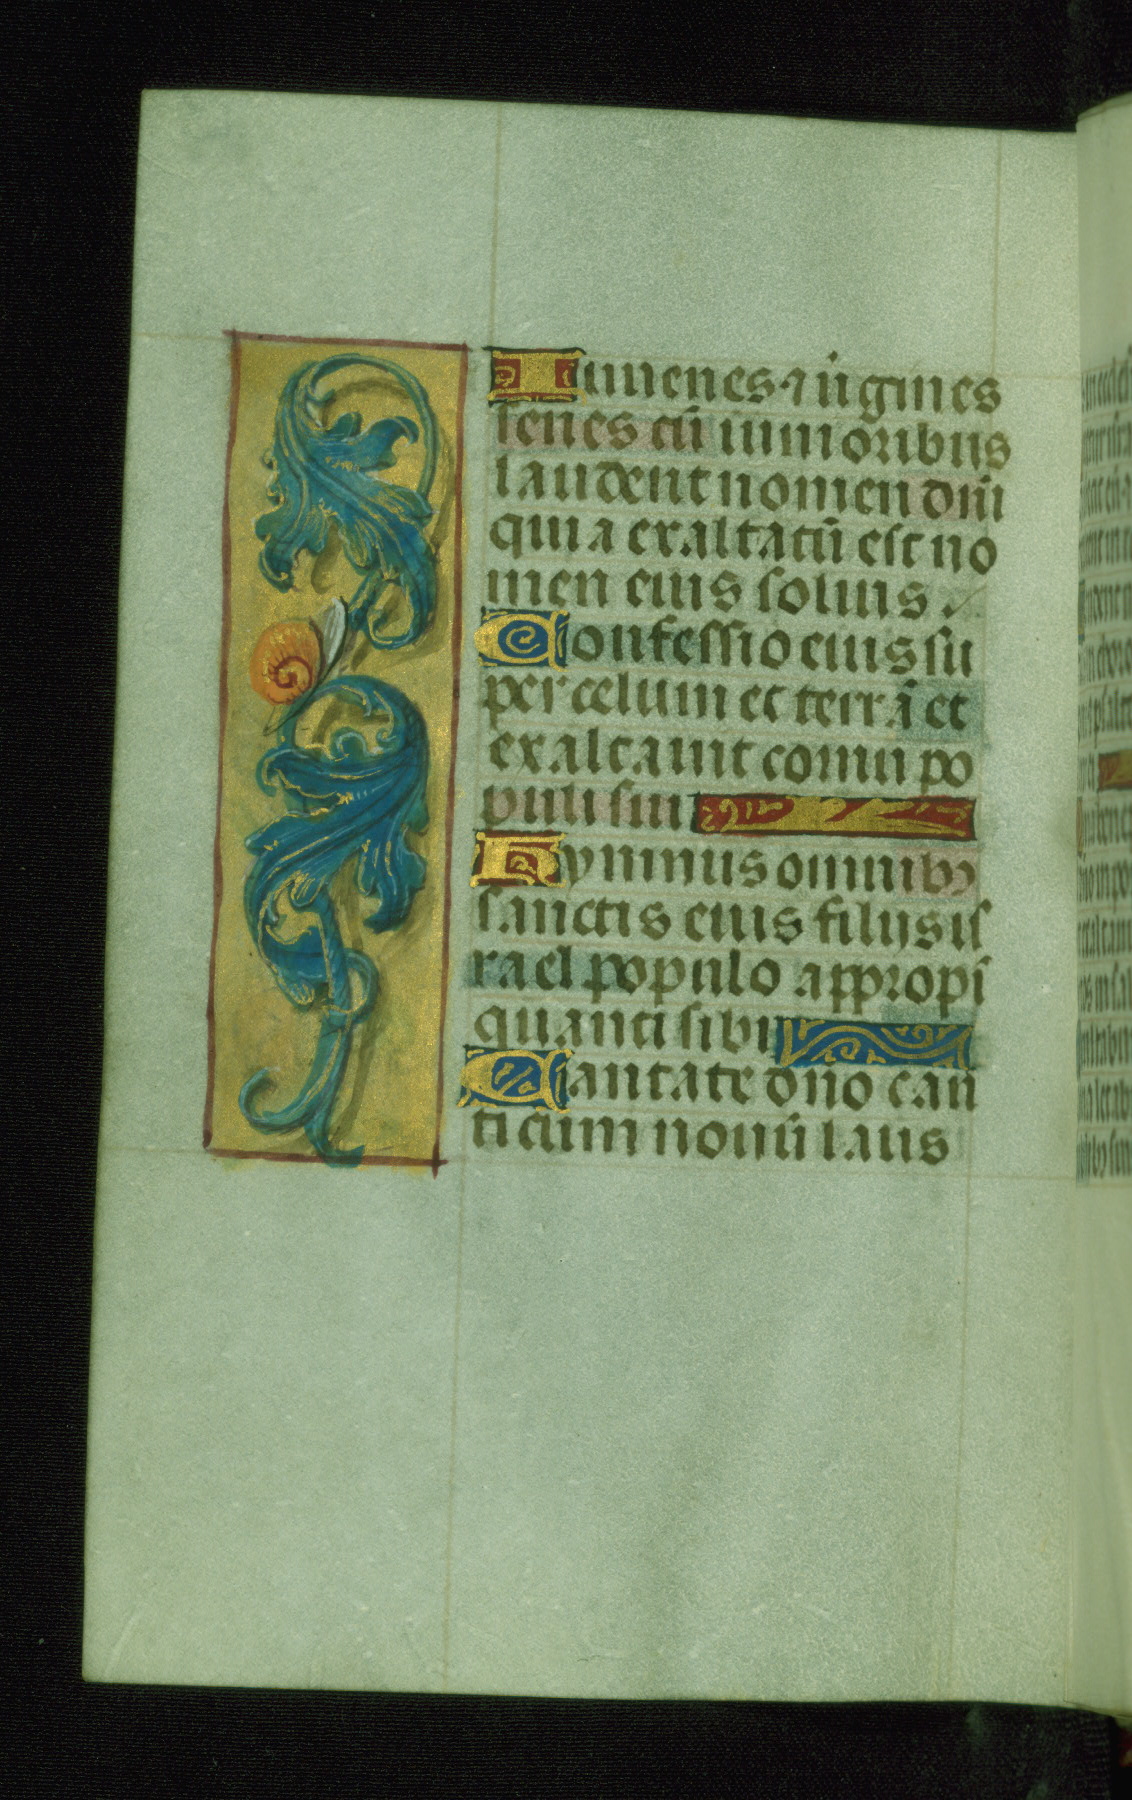 Iuuenes ⁊ ũgines
senes cũ iunioribus
laudent nomen dñi
quia exaltatũ est no
men eius solius.
Confessio eius su
per celum et terrã et
exaltauit cornu po
puli sui
Hymnus omnibꝫ
sanctis eius filijs is
rael populo appropi
quanti sibi
Cantate dño can
ticum nouũ laus